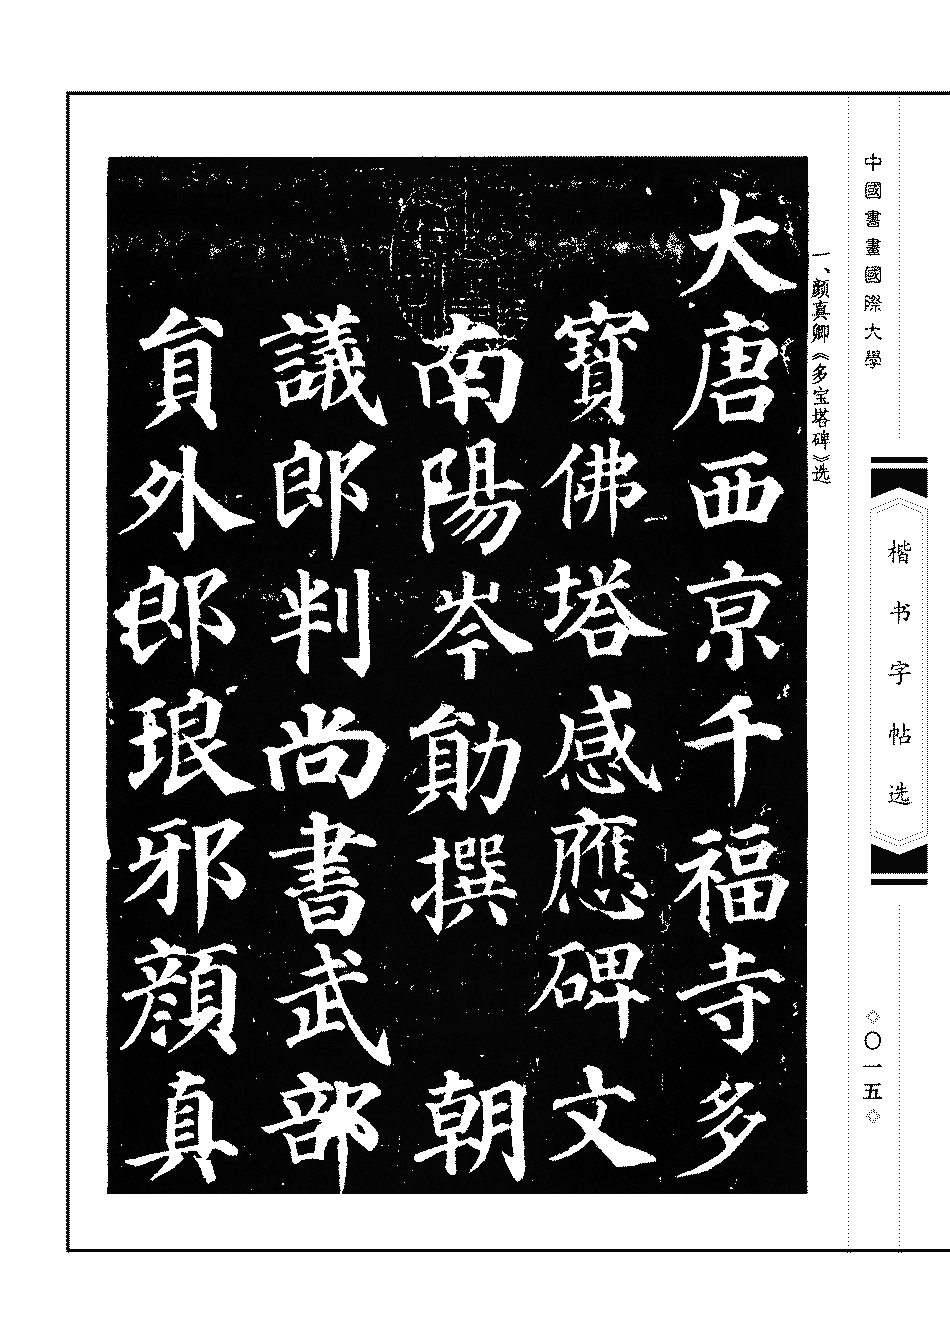 中國書畫國際大學
楷书字帖选
◇〇一五◇
一、颜真卿《多宝塔碑》选
大唐西京千福寺多
寶佛塔感應碑文
南陽岑勛撰 朝
議郎判尚書武部
員外郎琅邪顏真